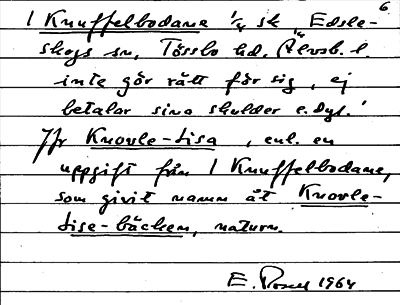 6
1 Knuffelbodane 1/4 sk, Edsle-
skogs sn, Tössbo hd, Älvsb. l.
inte gör rätt för sig, ej
betalar sina skulder e. dyl.'
Jfr Knorle-Lisa, enl. en
uppgift från 1 Knuffelbodane,
som givit namn åt Knorle-
Lise-bäcken, naturn.
E. 1964